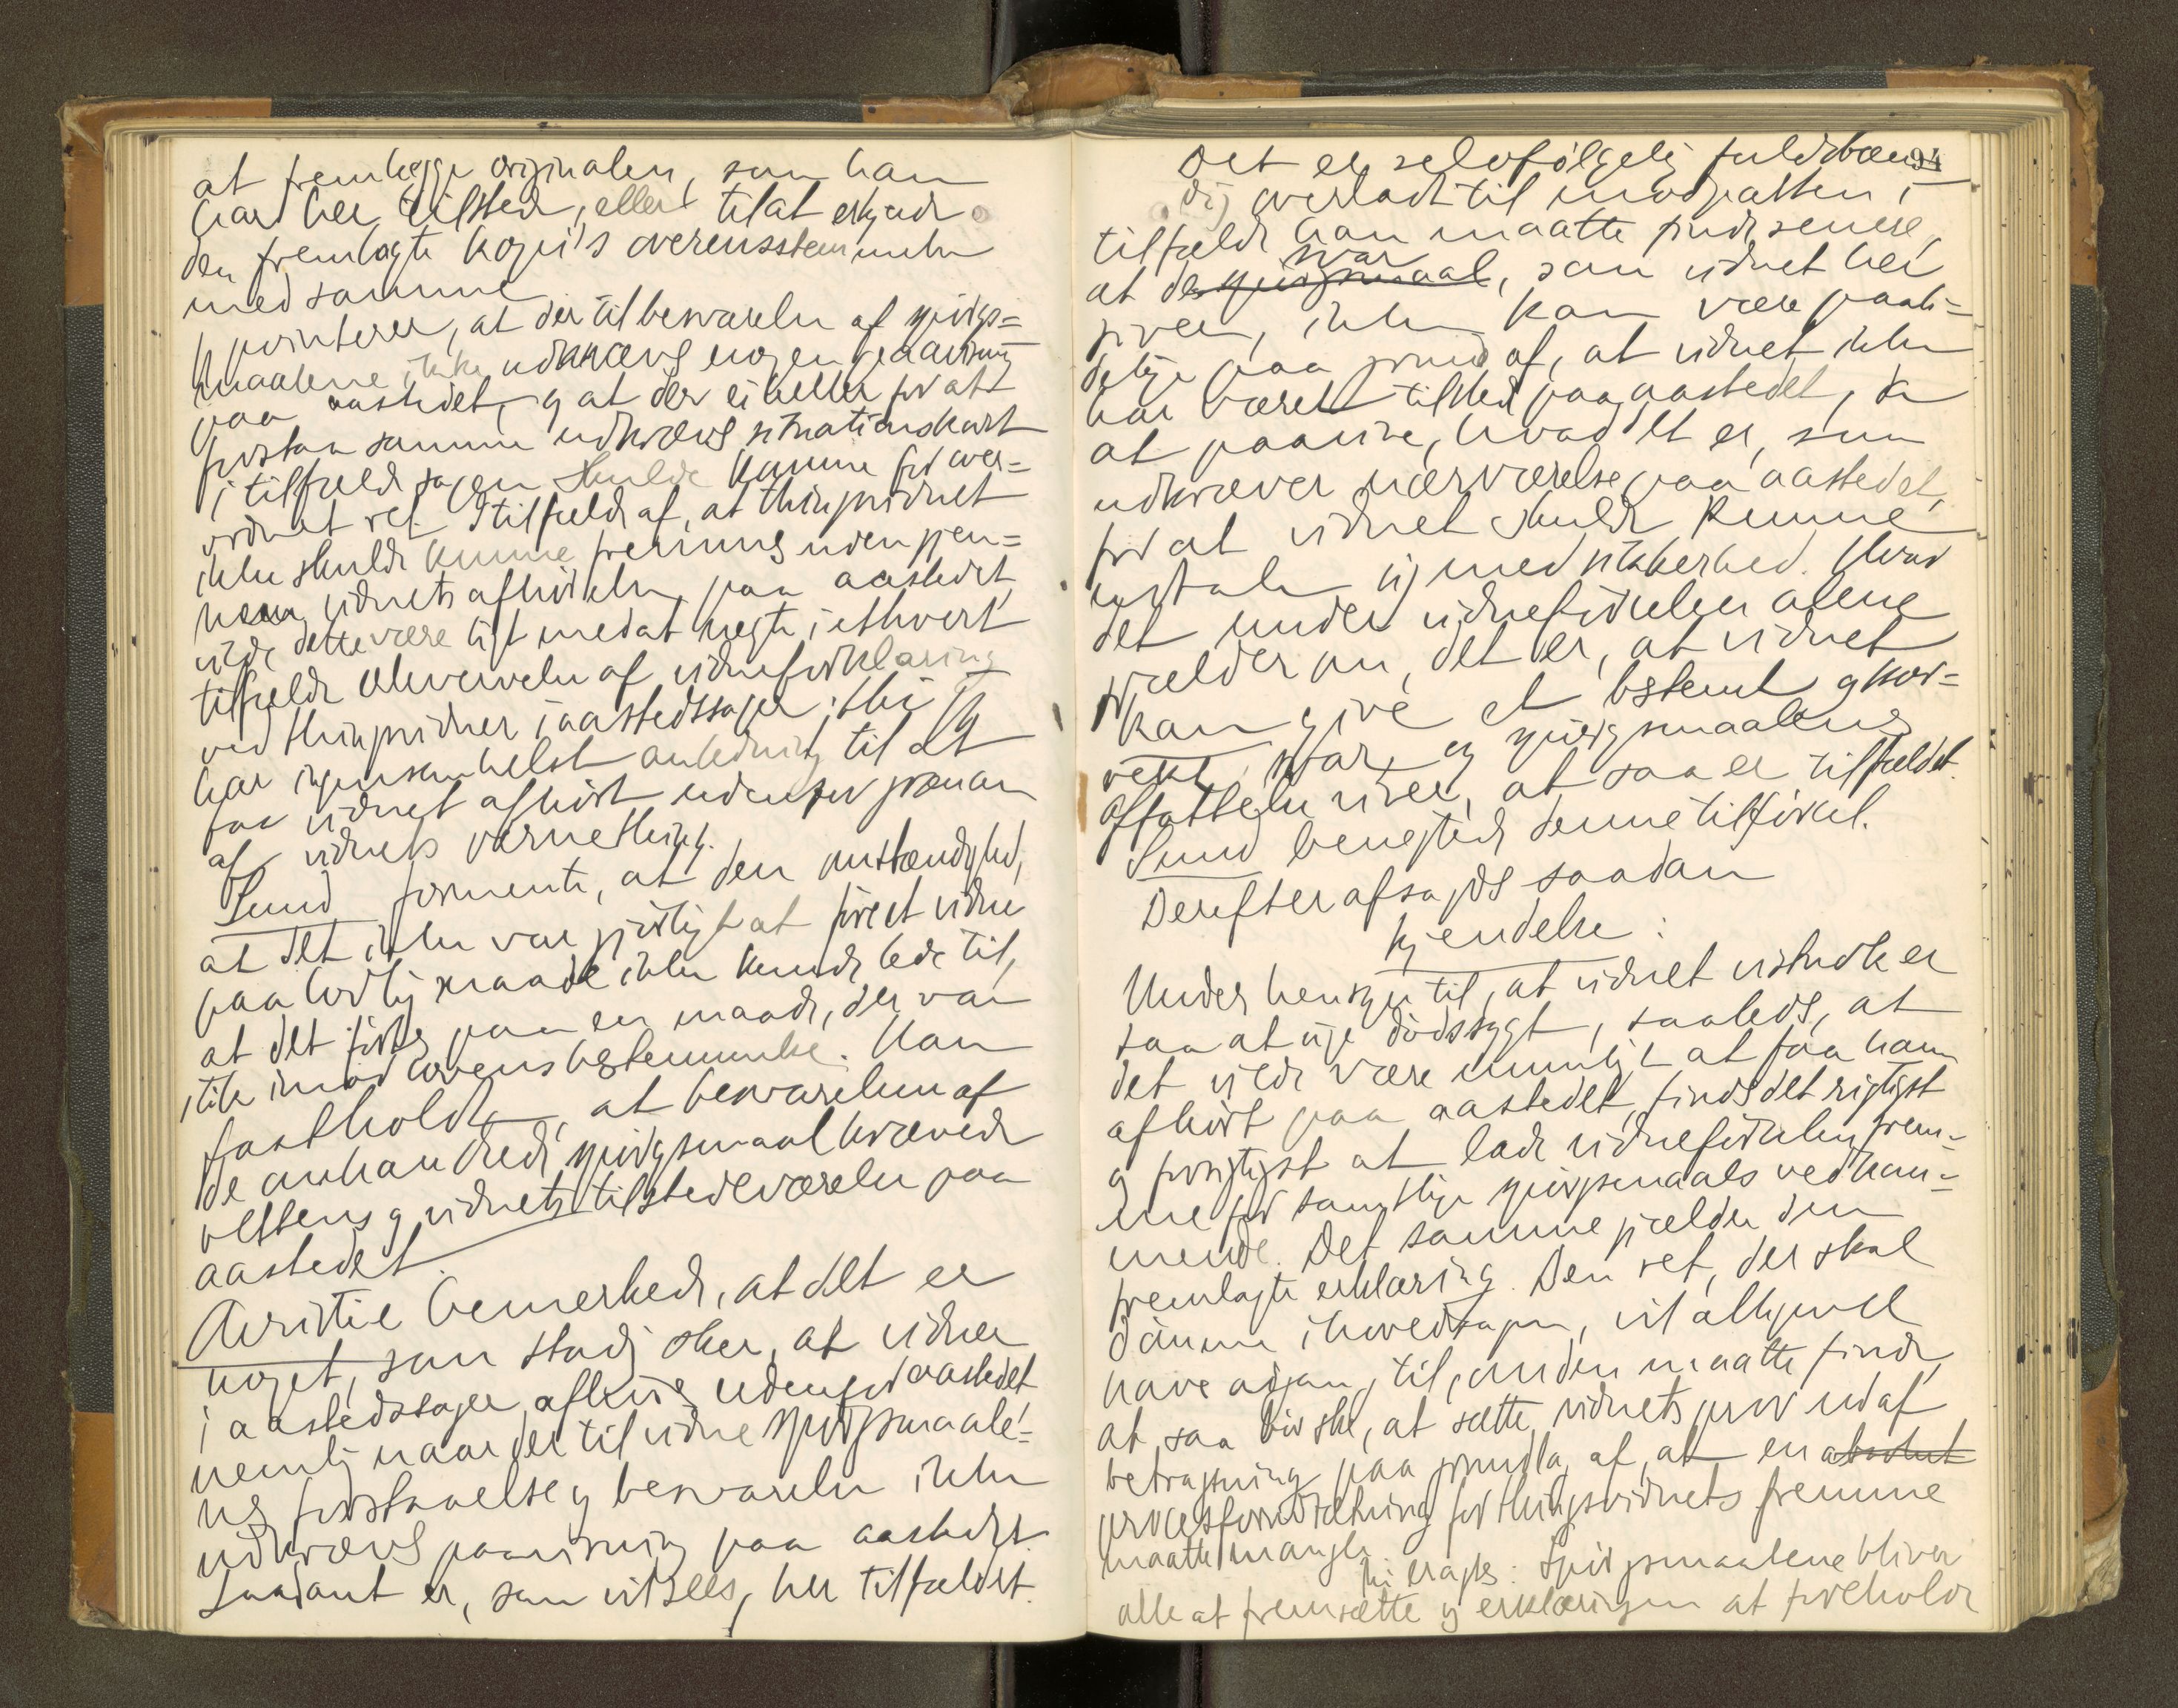 at fremlægge originalen, som han
har her tilstede, eller til at erkjende
den fremlagte kopi's overensstemmelse
med samme
pointerer, at der til besvarelse af spørgs=
maalene ikke udkræves nogen paavisning
paa aastedet, og at der ei heller for at
forstaa samme udkræves situationskart
i tilfælde sagen skulde komme for over=
ordnet ret. I tilfælde af, at thingsvidnet
ikke skulde kunne fremmes uden gjen=
nem vidnets afhørelse paa aastedet
vilde dette være ligt med at negte i ethvert
tilfælde erhvervelse af vidneforklaring
ved thingsvidner i aastedssager; thi jeg
har ingensomhelst anledning til at
faa vidnet afhørt udenfor grænsen
af vidnets vernething.
Lund formente, at den omstændighed,
at det ikke var gjørligt at føre et vidne
paa lovlig maade ikke kunde lede til,
at det førtes paa en maade, der var
stik imod lovens bestemmelse. Han
fastholdt, at besvarelsen af
de omhandlede spørgsmaal krævede
rettens og vidnets tilstedeværelse paa
aastedet.
Christie bemerkede, at det er
noget, som stadig sker, at vidner
i aastedssager afhøres udenfor aastedet
nemlig naar der til vidne spørgsmaale=
nes forstaaelse og besvarelse ikke
udkræves paavisning paa aastedet.
Saadant er, som vil sees, her tilfældet.
Det er selvfølgelig fuldstæn= 94
dig overladt til modparten i
tilfælde han maatte finde senere,
svar
at de spørgsmaal, som vidnet her
giver, ikke kan være paali=
delige paa grund af, at vidnet ikke
har været tilsted paa aastedet, da
at paavise, hvad det er, som
udkræver nærværelse paa aastedet,
for at vidnet skulde kunne
udtale sig med sikkerhed. Hvad
det under vidneførselen alene
gjælder om, det er, at vidnet
kan give et bestemt og kor=
rekt svar, og spørgsmaalenes
affattelse viser, at saa er tilfældet.
Lund benegtede denne tilførsel.
Derefter afsagdes saadan
kjendelse:
Under hensyn til, at vidnet vistnok er
saa at sige dødssygt, saaledes, at
det vilde være umuligt at faa ham
afhørt paa aastedet, findes det rigtigst
og forsigtigst at lade vidneførselen frem=
me for samtlige spørgsmaals vedkom=
mende. Det samme gjælder den
fremlagte erklæring. Den ret, der skal
dømme i hovedsagen, vil alligevel
have adgang til, om den maatte finde,
at saa bør ske, at sætte vidnets prov ud af
betragtning paa grundlag af, at en absolut
procesforudsætning for thingsvidnets fremme
maatte mangle.
Thi eragtes: Spørgsmaalene bliver
alle at fremsætte og erklæringen at foreholde